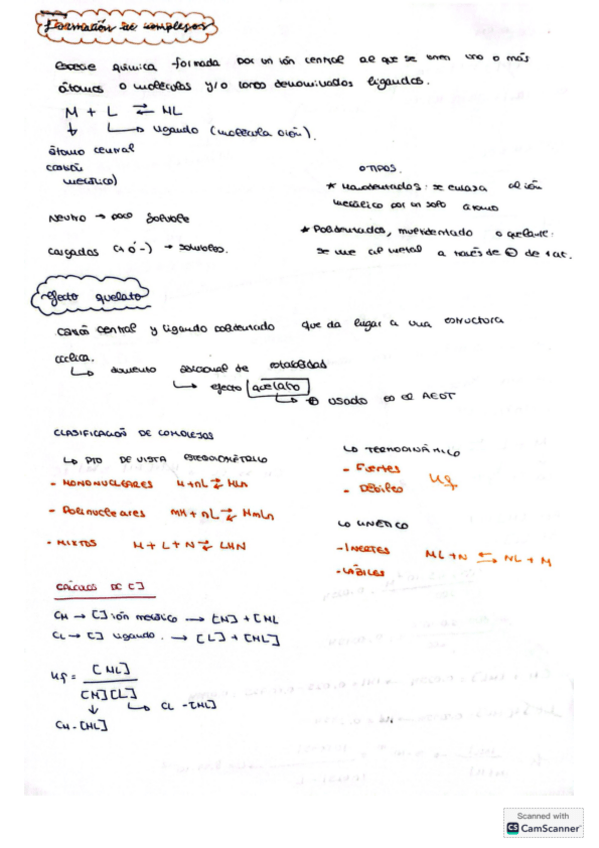 Formación de complejos
especie química formada por un ión central al que se unen uno o más
átomos o moléculas y/o iones denominados ligandos.
M + L ⇄ ML
↓ ↳ ligando (molécula o ión).
átomo central
catión
metálico)
OTIPOS.
* Monodentados: se enlaza al ión
metálico por un solo átomo
Neutro → poco soluble
cargados (+ ó -) → solubles.
* Polidentados, multidentado o quelante:
se une al metal a través de ⊕ de 1 at.
efecto quelato
catión central y ligando polidentado que da lugar a una estructura
cíclica.
↳ aumento adicional de estabilidad
↳ efecto quelato
↳ ⊕ usado es el AEDT
CLASIFICACIÓN DE COMPLEJOS
↳ PTO DE VISTA ESTEQUIOMÉTRICO
- MONONUCLEARES M + nL ⇄ MLn
- Polinucleares mM + nL ⇄ MmLn
- MIXTOS M + L + N ⇄ LMN
↳ TERMODINÁMICO
- Fuertes
- Débiles
Kf
↳ CINÉTICO
- INERTES
- LÁBILES
ML + N ⇄ NL + M
CÁLCULOS DE [ ]
CM → [ ] ión metálico → [M] + [ML
CL → [ ] ligando. → [L] + [ML]
Kf = [ML]
[M][L]
↓ ↳ CL - [ML]
CM - [ML]
Scanned with
CS CamScanner